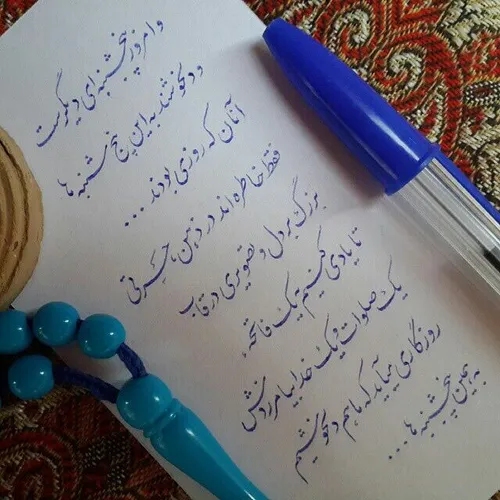 و امروز پنجشنبه‌ای دیگرست
و دلخوشند به این پنج‌شنبه‌ها
آنان که روزی بودند ...
فقط خاطره‌اند در ذهن، حسرتی
بزرگ بر دل و تصویری در قاب
تا یادی کنیم به یک فاتحه
یک صلوات و یک خدا بیامرزدش
روزگاری می‌آید که ما هم دلخوشیم
به همین پنجشنبه‌ها ...